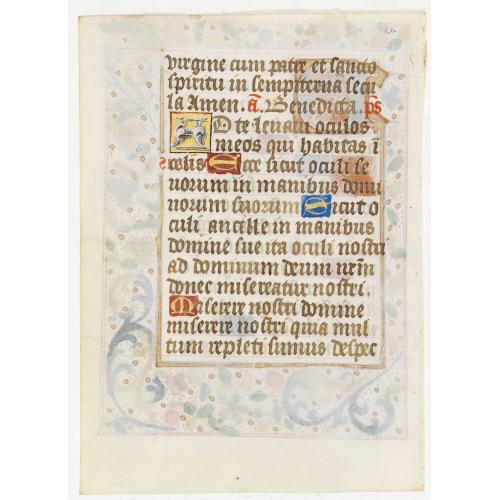 virgine cum patre et sancto
spiritu in sempiterna secu
la Amen. a̅. Benedicta. ps
Ad te levavi oculos
meos qui habitas i̅
celis Ecce sicut oculi se
vorum in manibus domi
norum suorum Sicut o
culi ancille in manibus
domine sue ita oculi nostri
ad dominum deum nr̅m
donec misereatur nostri.
Miserere nostri domine
miserere nostri quia mul-
tum repleti sumus despec